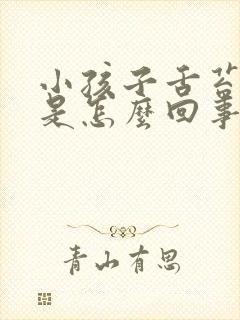 小孩子舌苔
是怎麼回事
青山有思